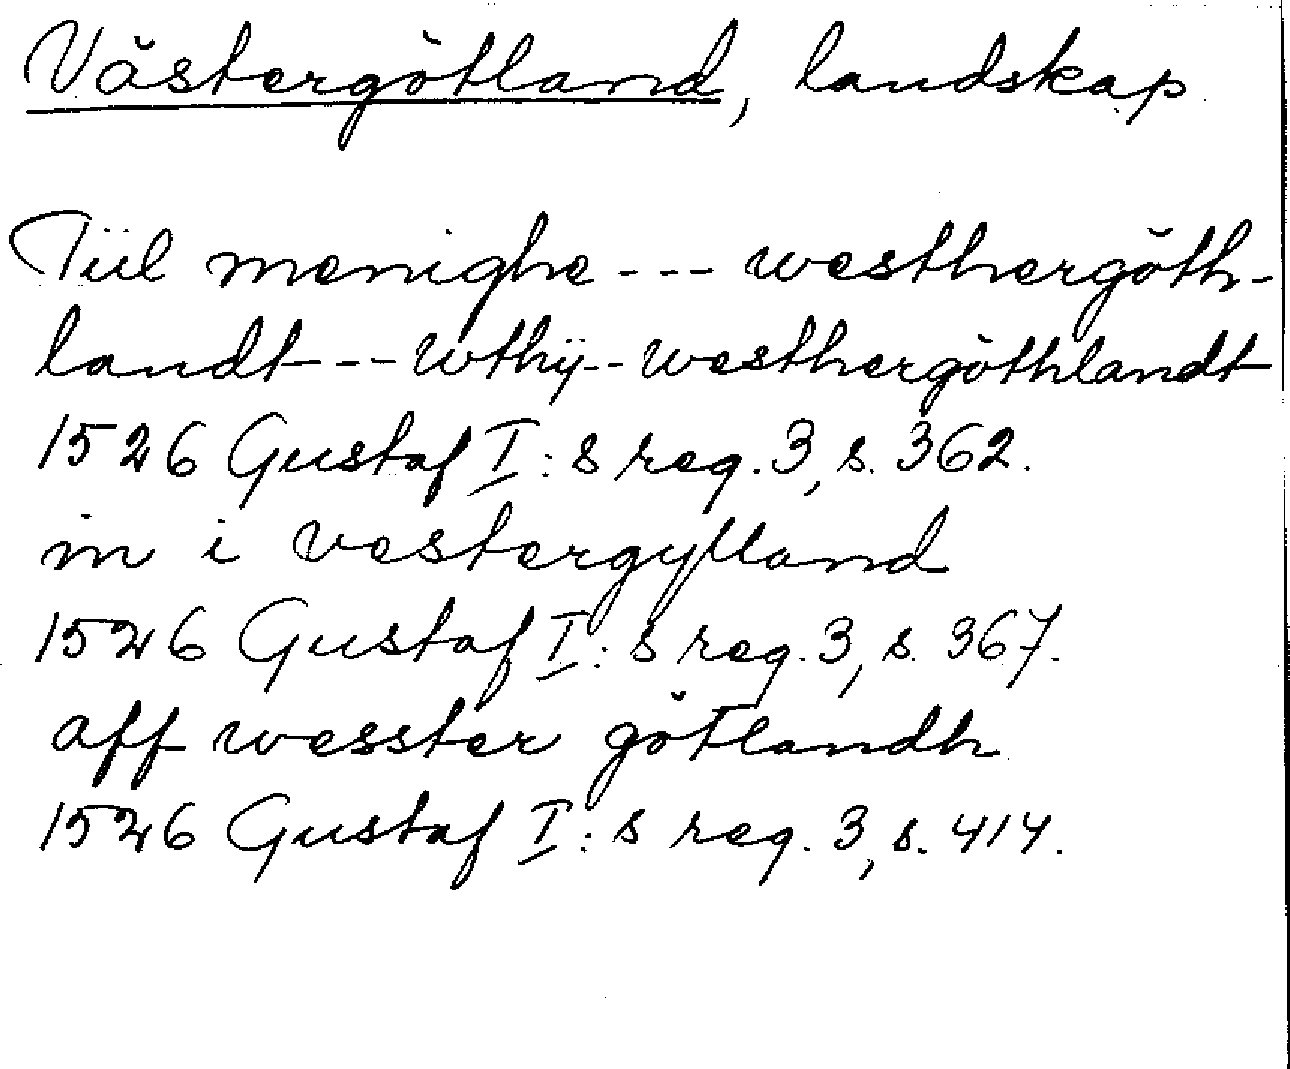 Västergötland, landskap
Tiil menighe --- westhergöth-
landt --- wthÿ -- westhergöthlandt
1526 Gustaf I:s reg. 3, s. 362.
in i vestergylland
1526 Gustaf I:s reg. 3, s. 367.
aff wesster götlandh
1526 Gustaf I:s reg. 3, s. 414.